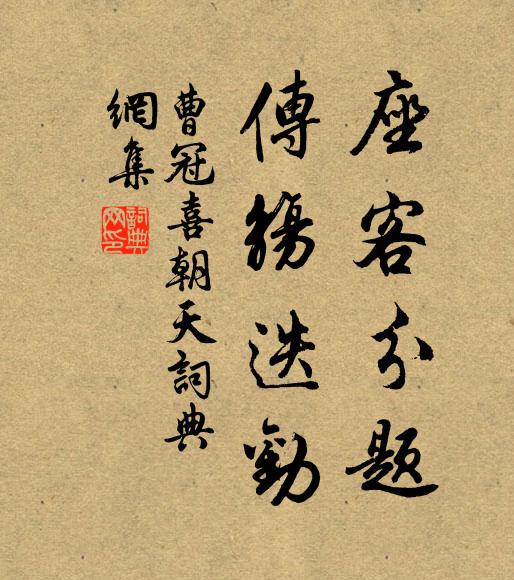 座客分题
傳觴迭勸
曹冠喜朝天詞典
網集
詞典網印